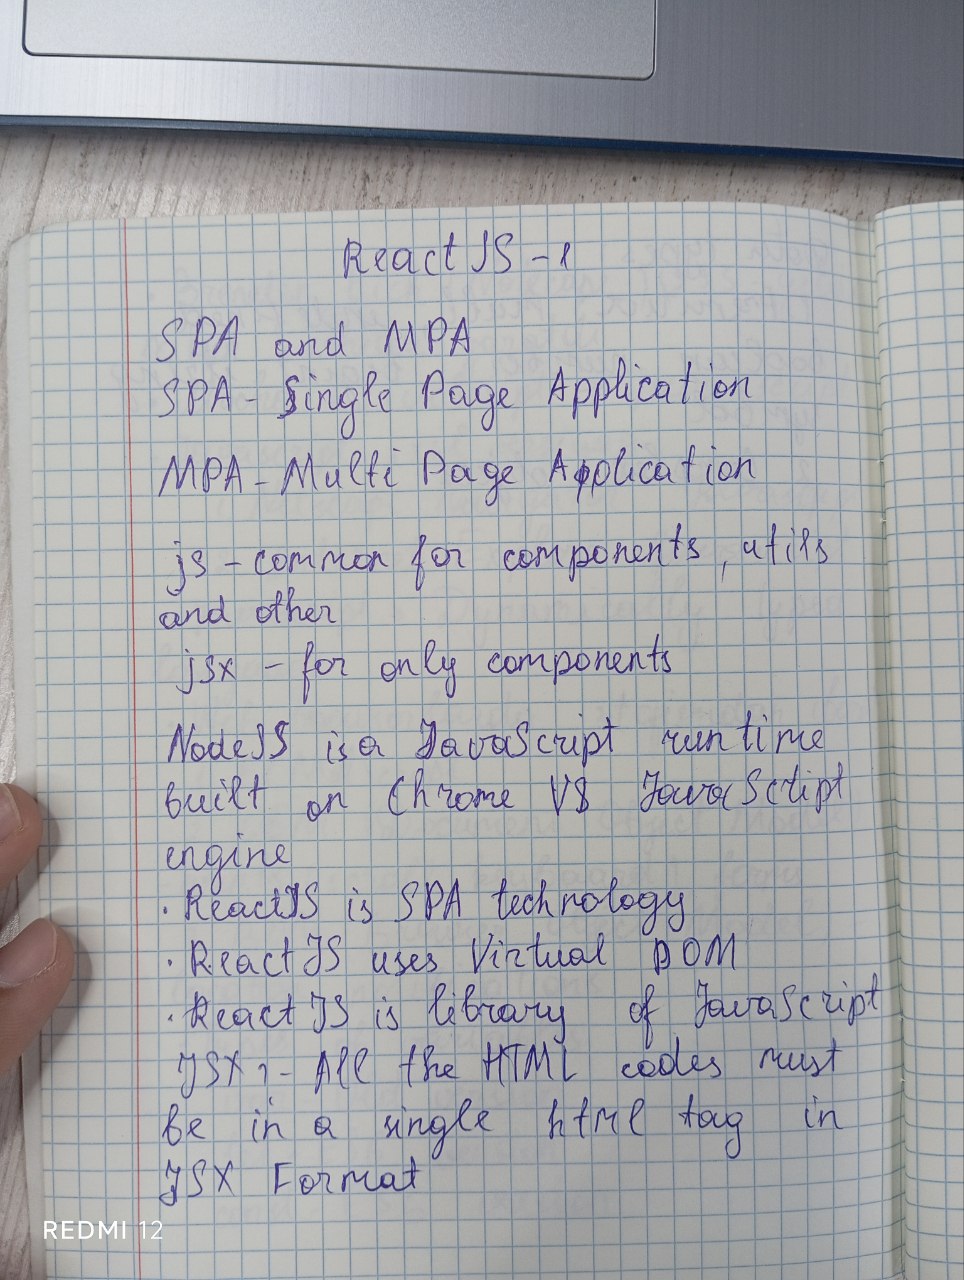 ReactJS-1
SPA and MPA
SPA - Single Page Application
MPA - Multi Page Application
js - common for components, utils
and other
jsx - for only components
NodeJS is a JavaScript runtime
built on Chrome V8 JavaScript
engine
· ReactJS is SPA technology
· ReactJS uses Virtual DOM
· ReactJS is library of JavaScript
JSX ?- All the HTML codes must
be in a single html tag in
JSX Format
REDMI 12